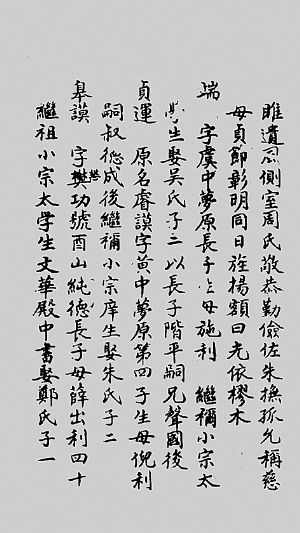 雎遺忘側室周氏敬恭勤儉佐朱撫孤允稱慈
母貞節彰明同日旌揚額曰光依樛木
端 字虞中夢原長子生母施利 繼禰小宗太
學生娶吳氏子二以長子階平嗣兄聲國後
貞運 原名睿謨字黃中夢原第四子生母倪利
嗣叔德成後繼禰小宗庠生娶朱氏子二
皋謨 字懋功號酉山純德長子母薛出利四十
繼祖小宗太学生文華殿中書娶鄭氏子一